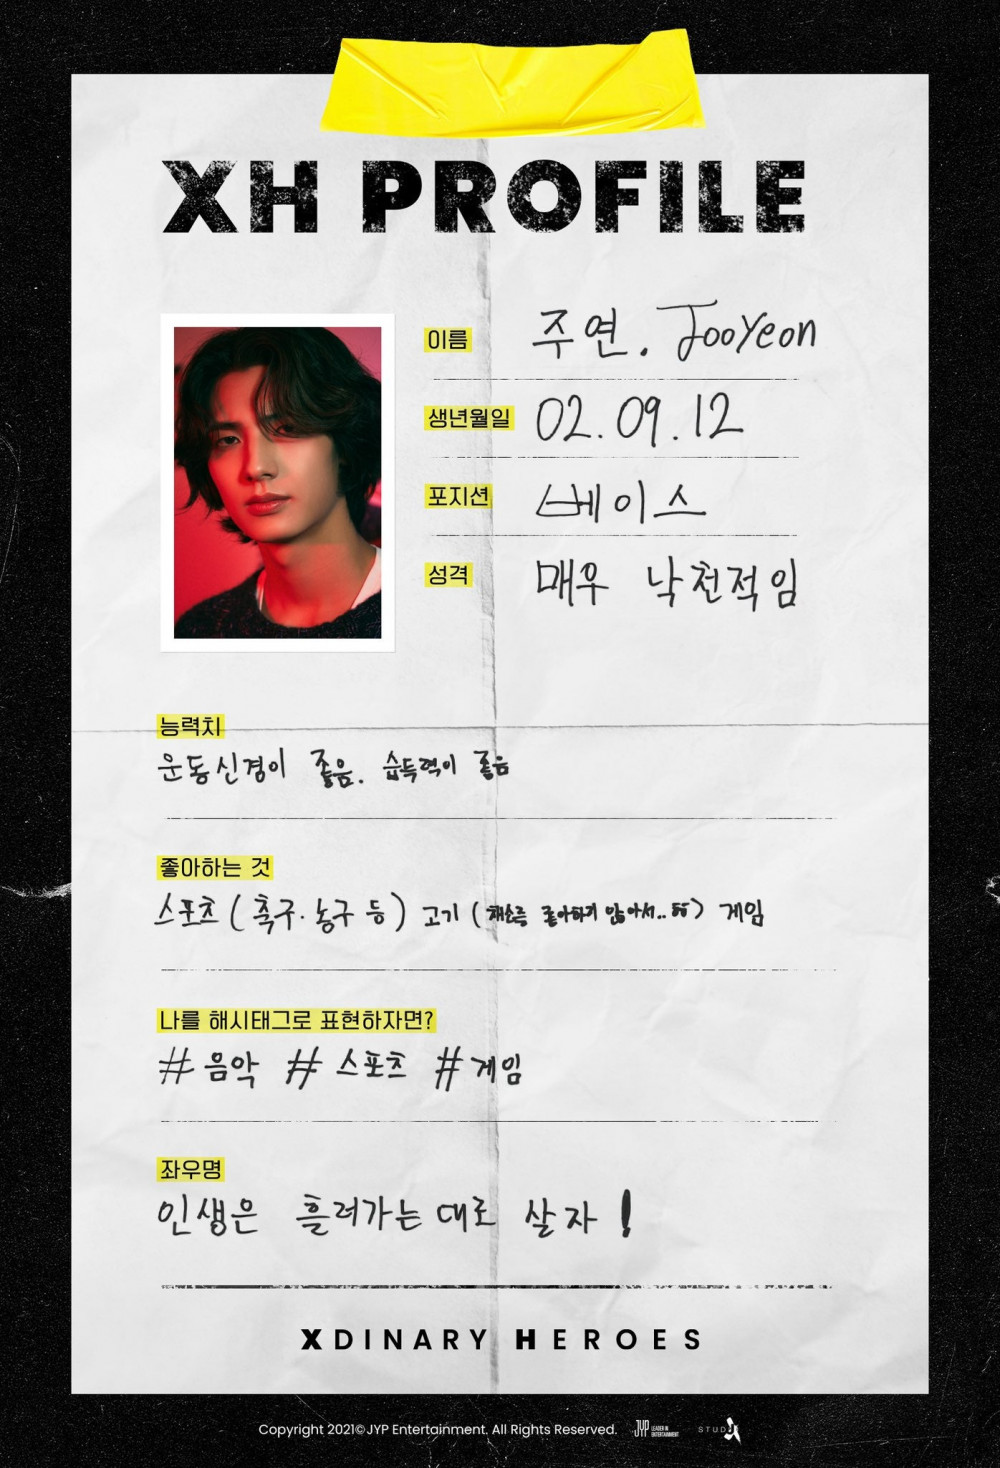 XH PROFILE
이름
주연. JooYeon
생년월일
02.09.12
포지션
베이스
성격
매우 낙천적임
능력치
운동신경이 좋음. 습득력이 좋음
좋아하는 것
스포츠 (축구·농구 등) 고기 (채소를 좋아하지 않아서..ㅎㅎ) 게임
나를 해시태그로 표현하자면?
#음악 #스포츠 #게임
좌우명
인생은 흘러가는 대로 살자!
XDINARY HEROES
Copyright 2021©JYP Entertainment. All Rights Reserved.
JYP LEADER IN ENTERTAINMENT